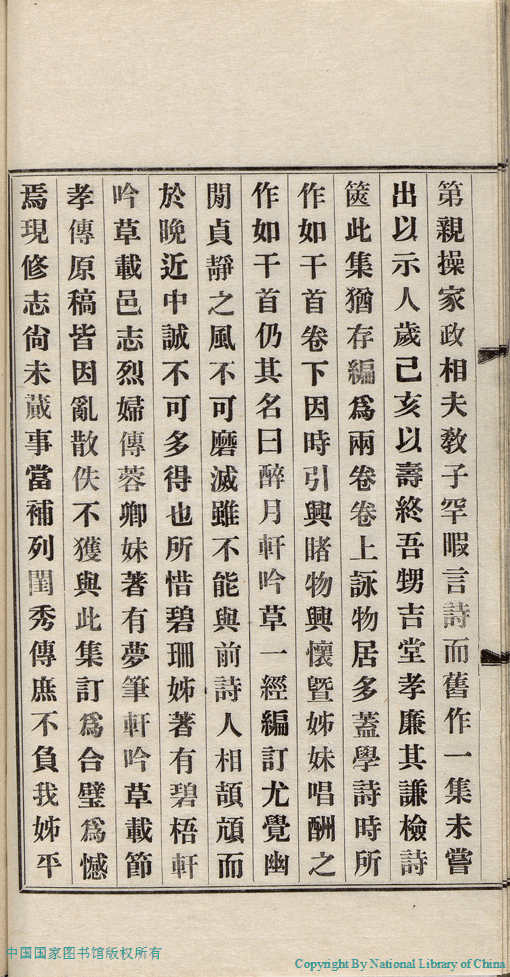 第親操家政相夫敎子罕暇言詩而舊作一集未嘗
出以示人歲己亥以壽終吾甥吉堂孝廉其謙檢詩
篋此集猶存編爲兩卷卷上詠物居多蓋學詩時所
作如干首卷下因時引興睹物興懷曁姊妹唱酬之
作如干首仍其名曰醉月軒吟草一經編訂尤覺幽
閒貞靜之風不可磨滅雖不能與前詩人相頡頏而
於晚近中誠不可多得也所惜碧珊姊著有碧梧軒
吟草載邑志烈婦傳蓉卿妹著有夢筆軒吟草載節
孝傳原稿皆因亂散佚不獲與此集訂爲合璧爲憾
焉現修志尙未蕆事當補列閨秀傳庶不負我姊平
中国国家图书馆版权所有
Copyright By National Library of China